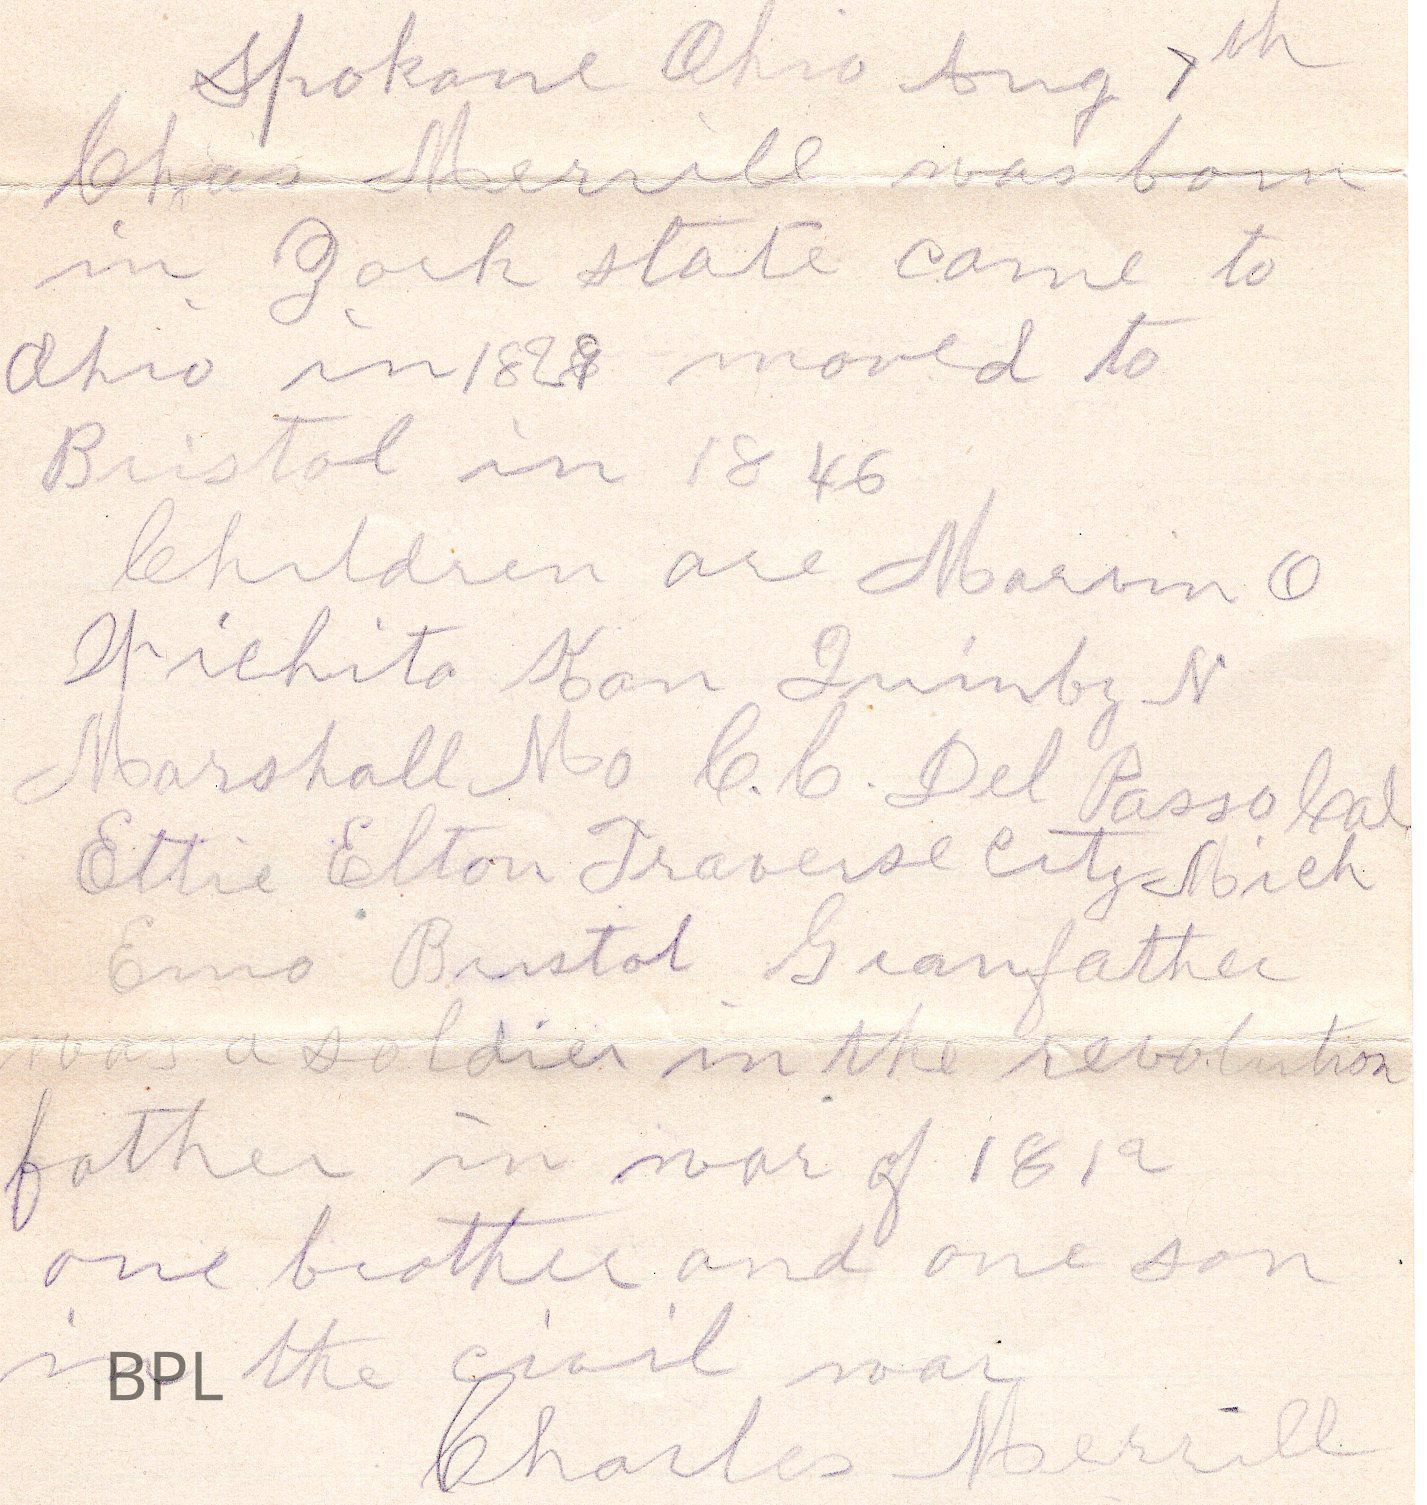 Spokane Ohio Aug 7th
Chas Merrill was born
in York state came to
Ohio in moved to
Bristol in 1846
Children are Marvin O
Wichita Kan Quinby N
Marshall Mo C.C. Del Passo Cal
Ettie Elton Traverse City Mich
Emo Bristol Granfather
was a soldier in the revolution
father in war of 1812
one brother and one son
in the civil war
BPL
Charles Merrill